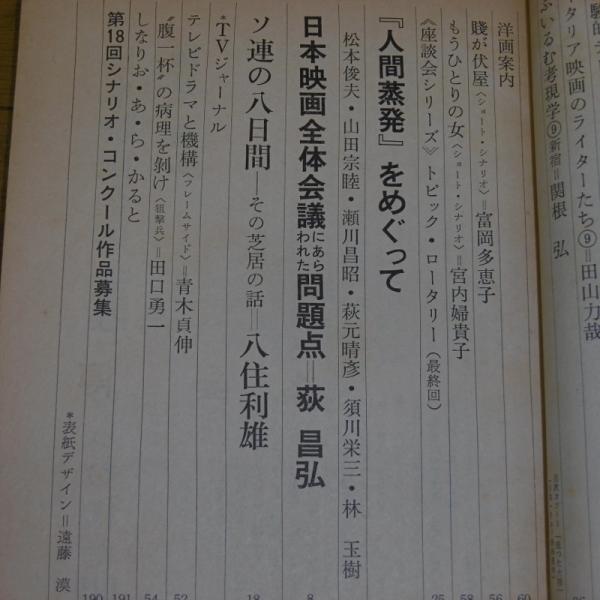 タリア映画のライターたち⑨=田山力哉
ふいるむ考現学⑨新宿=関根 弘
洋画案内 60
賤が伏屋〈ショート・シナリオ〉=富岡多恵子 56
もうひとりの女〈ショート・シナリオ〉=宮内婦貴子 58
《座談会シリーズ》トピック・ロータリー(最終回) 25
『人間蒸発』をめぐって
松本俊夫・山田宗睦・瀬川昌昭・萩元晴彦・須川栄三・林 玉樹
日本映画全体会議にあらわれた問題点=荻 昌弘 8
ソ連の八日間―その芝居の話 八住利雄 18
*TVジャーナル
テレビドラマと機構〈フレームサイド〉=青木貞伸 52
〝腹一杯〟の病理を剝け〈狙撃兵〉=田口勇一 54
しなりお・あ・ら・かると 191
第18回シナリオ・コンクール作品募集 190
*表紙デザイン=遠藤 漠